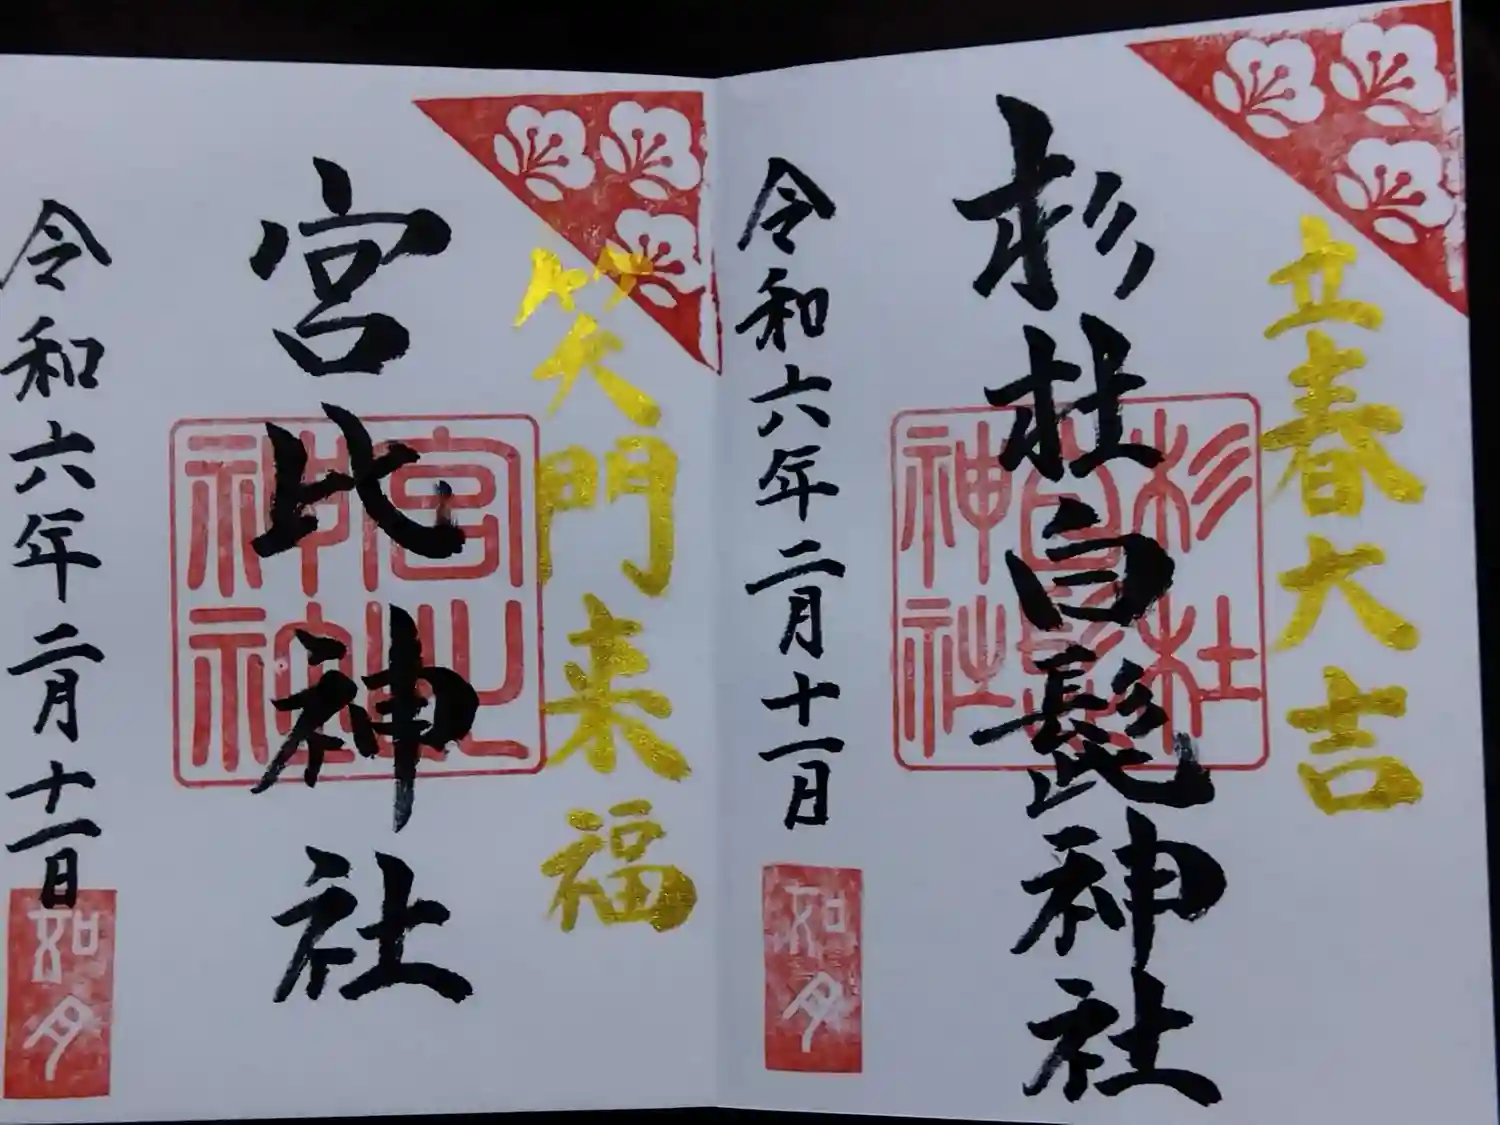 立春大吉
杉杜白髭神社
杉杜
白髭
神社
令和六年二月十一日
如月
笑門来福
宮比神社
宮比
神
令和六年二月十一日
如月